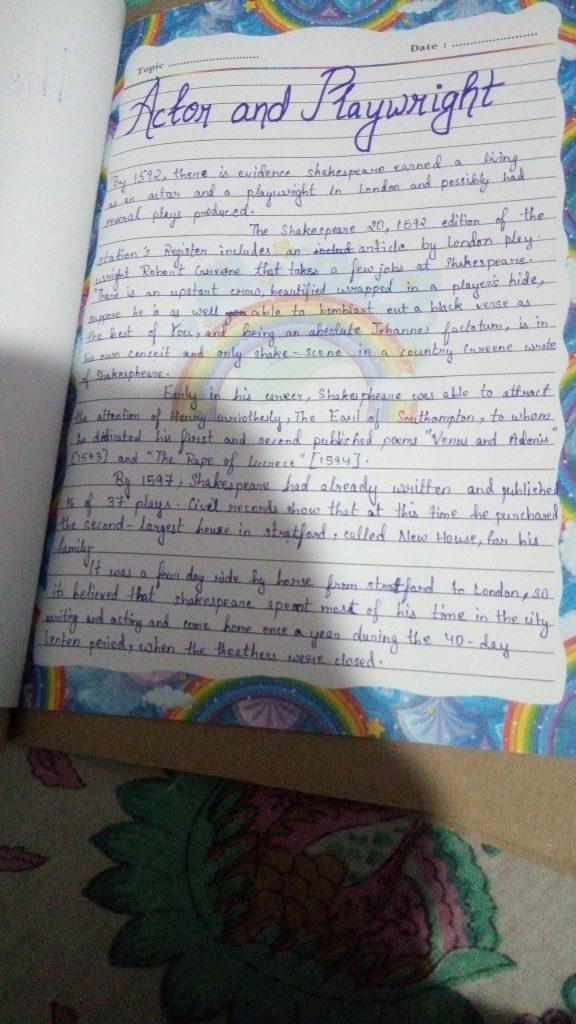 Topic ............................
Date : ............................
Actor and Playwright
By 1592, there is evidence shakespeare earned a living
as an actor and a playwright In London and possibly had
several plays produced.
The Shakespeare 20, 1592 edition of the
station's Register includes an includ article by London play
wright Robert Greene that takes a few jobs at Shakespeare.
"There is an upstart crow, beautified wrapped in a player's hide,
suppose he is as well able to bomblast out a black verse as
the best of You; and being an absolute Johannes factotum, is in
his own conceit and only shake-scene in a country Greene wrote
of Shakespheare.
Early in his career, Shakespheare was able to attract
the attention of Henry wriothesly, The Earl of Southampton, to whom
he dedicated his first and second published poems "Venus and Adonis"
[1593] and "The Rape of Lucrece" [1594].
By 1597, Shakespeare had already written and published
16 of 37 plays. Civil records show that at this time he purchased
the second-largest house in stratford, called New House, for his
family.
It was a four day ride by horse from stratford to London, so
its believed that shakespeare speant most of his time in the city
writing and acting and come home once a year during the 40-day
lenten period, when the theathers were closed.